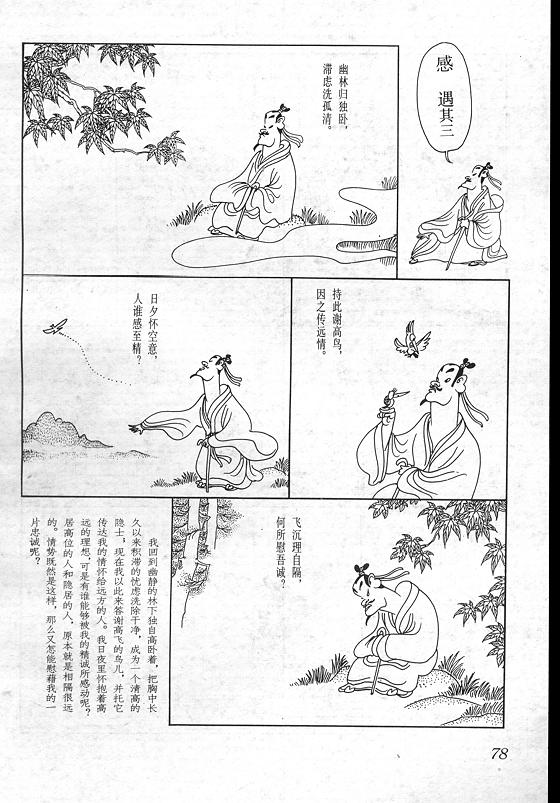 感遇其三
幽林归独卧，
滞虑洗孤清。
持此谢高鸟，
因之传远情。
日夕怀空意，
人谁感至精？
飞沉理自隔，
何所慰吾诚？
我回到幽静的林下独自高卧着，把胸中长
久以来积滞的忧虑洗除干净，成为一个清高的
隐士，现在我以此来答谢高飞的鸟儿，并托它
传达我的情怀给远方的人。我日夜里怀抱着高
远的理想，可是有谁能够被我的精诚所感动呢？
居高位的人和隐居的人，原本就是相隔很远
的。情势既然是这样，那么又怎能慰藉我的一
片忠诚呢？
78